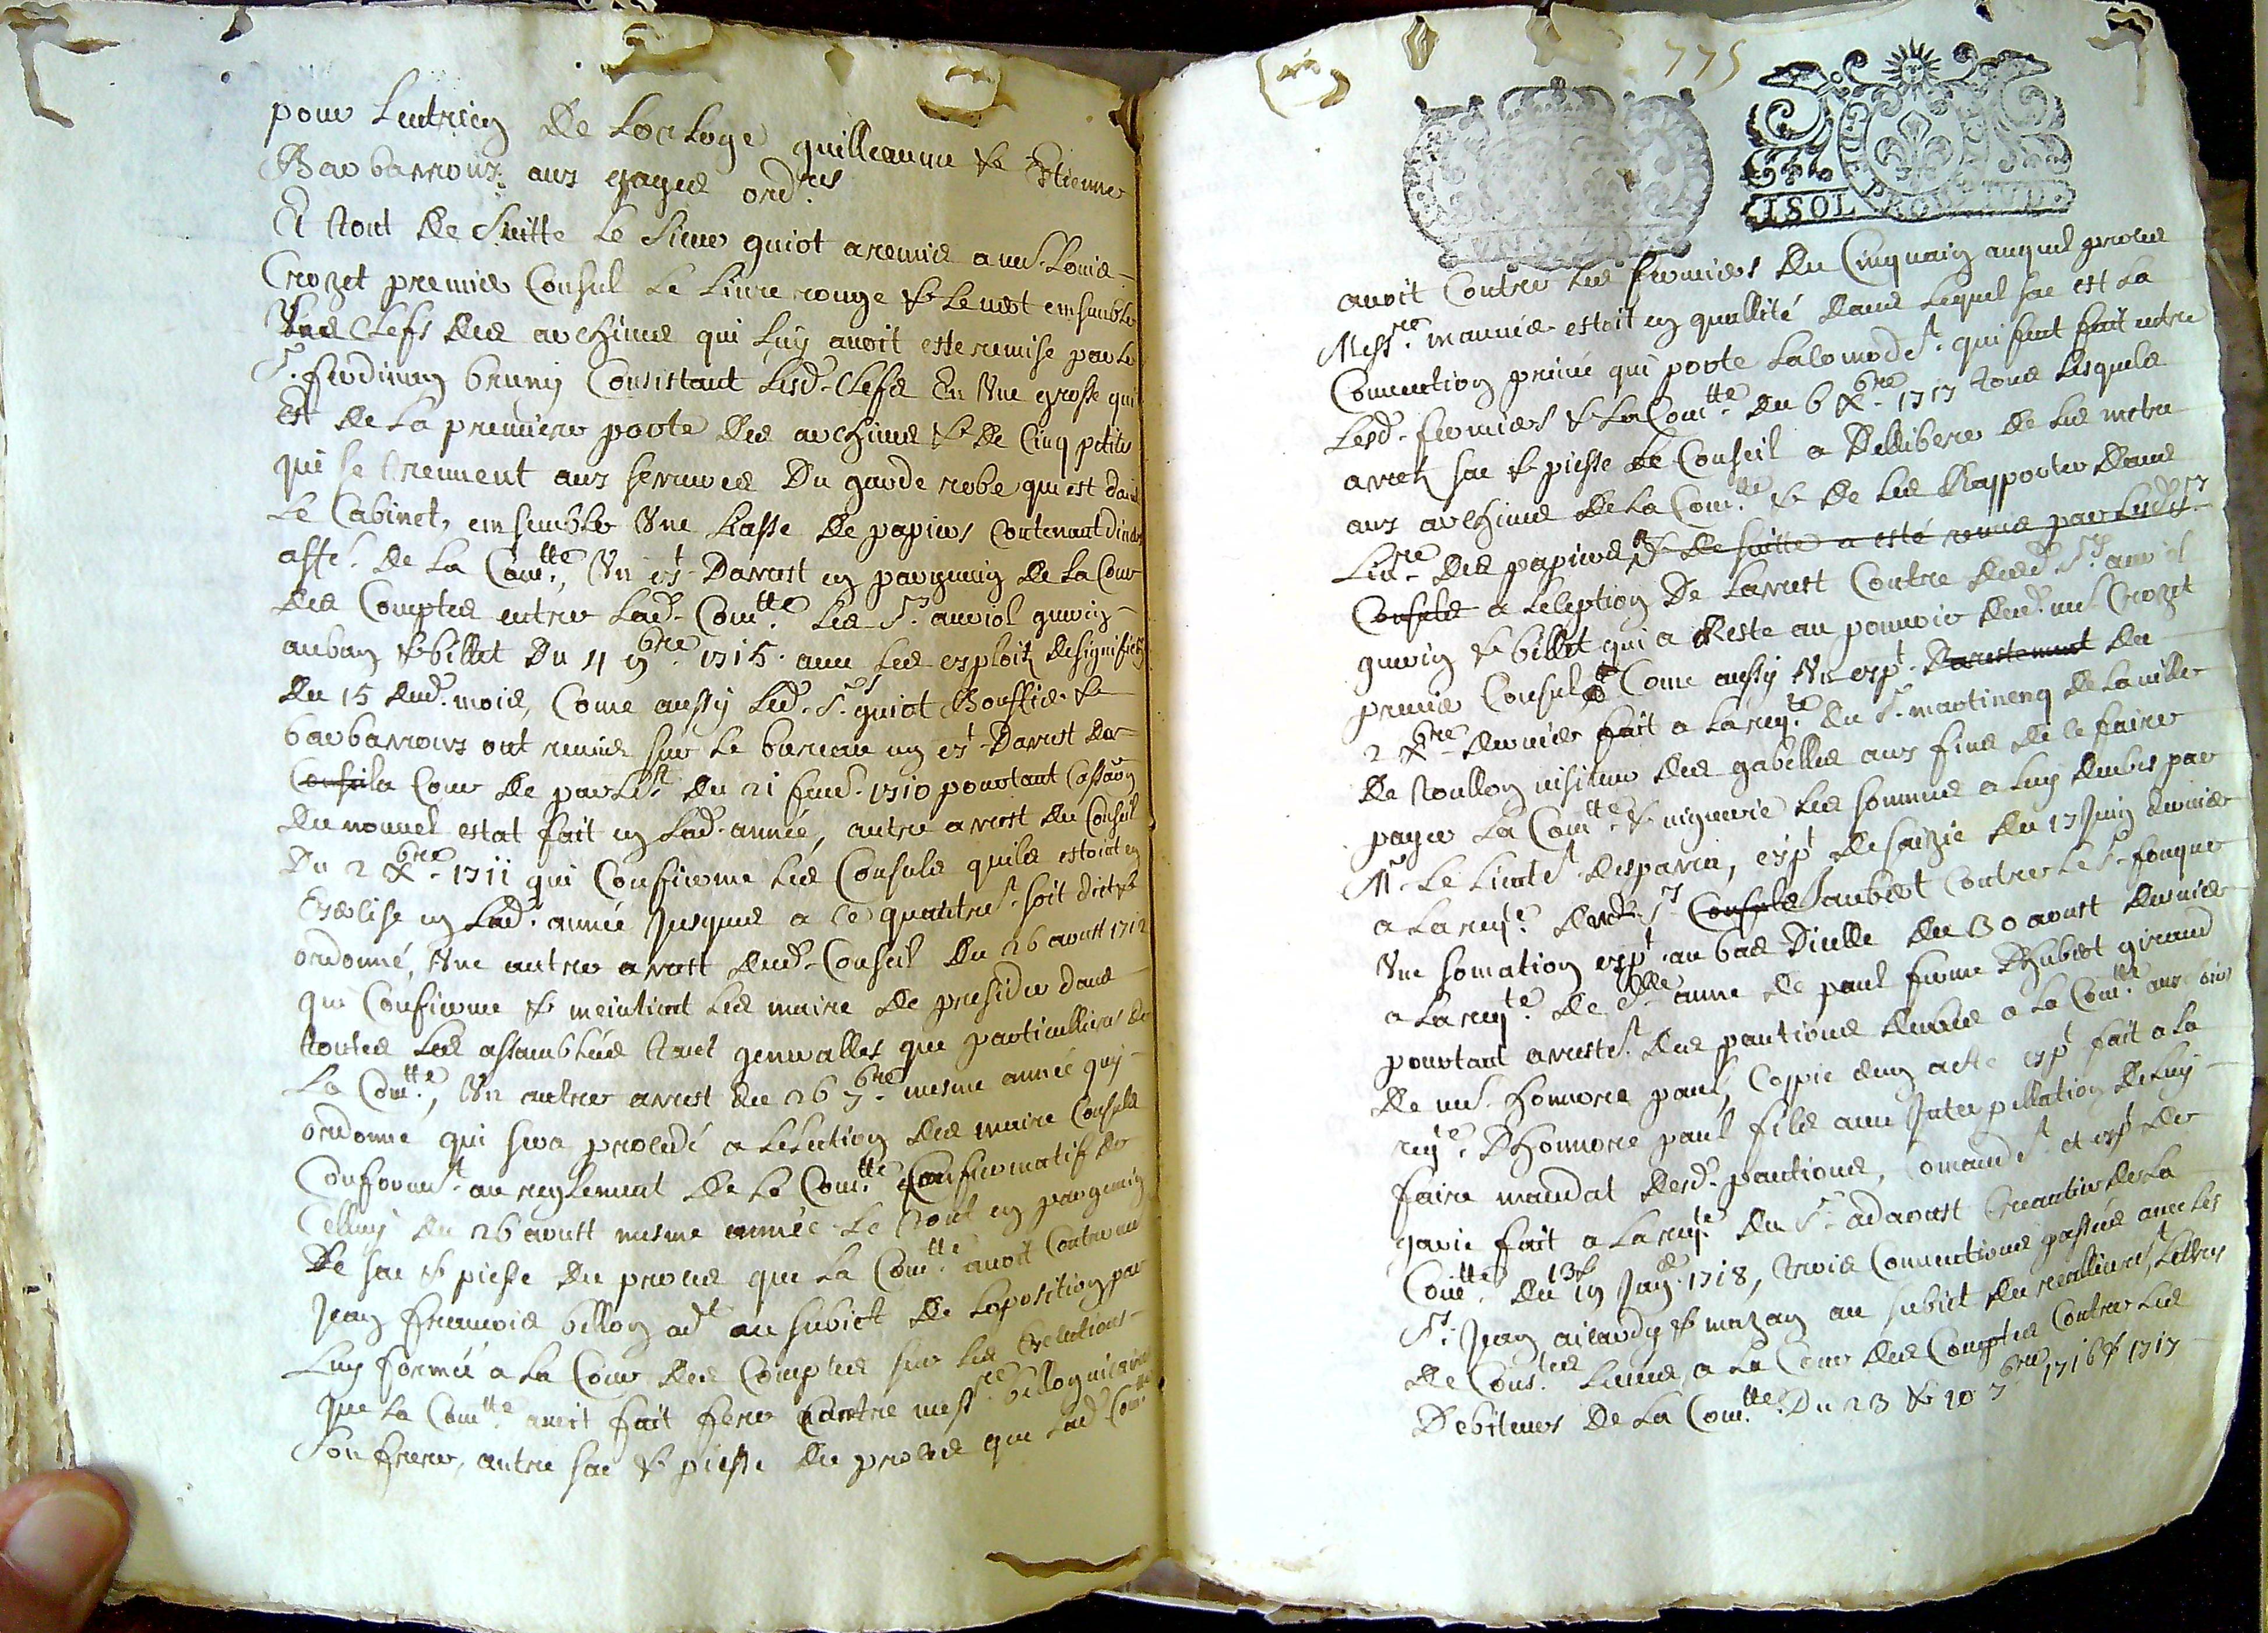 pour Lentrien de Lorloge guilleaume & Estienne
Barbarroux aux gages ord.res
Et tout de suitte le sieur guiot a remis a mr. Louis
Crozet premier Consul le livre rouge & le met ensemble
les Clefs des archives qui luy avoit este remise par le
Sr. ferdinan bruny Consistant lesd. Clefs En Une grosse qui
est de la premiere porte des archives & de Cinq petites
qui se treuvent aux serrures Du garde robe qui est dans
le Cabinet, ensemble Une liasse de papiers Contenant divers
affe. de la Com.tte, Un ext. Darrest en pargemin de la Cour
des Comptes entre lad. Com.tte les Sr. auriol guerin
auban & billet Du 4 9bre 1715. avec les exploitz de signiffier
du 15 dud. mois, Come aussy led. Sr. guiot Bouffier &
barbarroux ont remis sur le bureau un ext. Darrest de
la Cour de parlt. du 21 feuv. 1710 pourtant Cassaon
du nouvel estat fait en lad. année, autre arrest du Conseil
Du 2 Xbre 1711 qui Confirme les Consuls quils estoict en
Exercise en lad. année jusques a ce quautremt. soit dict &
ordonné, Une autre arrest dud. Conseil Du 26 aoust 1712
qui Confirme & meintient les maire de presider dans
toutes les assamblées tant generalles que particullieres de
la Com.tte, Un autre arrest du 26 7bre mesme année quy
ordonne qui sera procedé a lelection des maire Consuls
Conformt. au reglement de la Com.tte Confirmatif de
Celluy du 26 aoust mesme année le tout en pargemin
De sac & piesse du proces que la Com.tte avoit Contre mr
jean francois billon adt. au subiet de loposition par
luy formée a la Cour des Comptes sur les Exéctions
que la Com.tte avoit fait fere Contre messre billon
son frere, autre sac & piesse du proces que lad. Com.tte
775
ISOL
avoit Contre les fermiers du Cinquain auquel proces
Messre. maunier estoit en quallité dans lequel sac est la
Convention privée qui porte lacomodt. qui feut fait entre
lesd. fermiers & la Com.tte du 6 Xbre 1717 tous lesquels
arretz sac & piesse le Conseil a Delibere de les metre
aux archives de la Com.tte & de les Rapporter dans
Livre des papiers & de suitte a esté remis par lesd. Srs
Consuls a leleption De larrest Contre desd. Srs. auriol
guerin & billet qui a Reste au pouvoir dud. mr Crozet
premier Consul Come aussy Un expt. Darrestement du
2 Xbre dernier fait a la reqte. du Sr. martineng de la ville
de toullon visiteur des gabelles aux fins de le faire
payer la Com.tte & viguerie les sommes a luy deubes par
Mr. le lieutet. desparra, expt. de saizie du 17 juin dernier
a la reqte. dud. Sr. Consuls jaubert Contre le Sr. fouque
Une somation expt. au bas Dicelle du 30 aoust dernier
a la reqte. de dlle anne de paul femme Dhubert giraud
pourtant arrestt. des pantions deubes a la Com.tte
de mr. honnore paul, Coppie dun acte expt. fait a la
reqte. Dhonnore paul fils avec jnterpellation de luy
faire mandat desd. pantions, Comandt. et expt. de
gavie fait a la reqte. du Sr. adaoust Creantier de la
Com.tte du 19 janv. 1718, trois Conventions passées avec les
Sr. jean aicardy & mazan au subiet du recallieret, lettres
de Const. livees a la Cour des Comptes Contre les
Debiteurs De la Com.tte Du 23 & 10 7bre 1716 & 1717